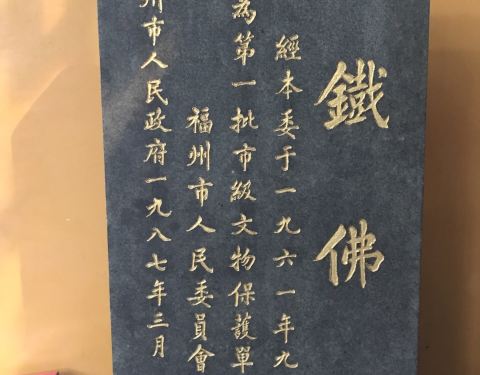 鐵佛
經本委于一九六一年九
為第一批市級文物保護單
福州市人民委員會
州市人民政府一九八七年三月